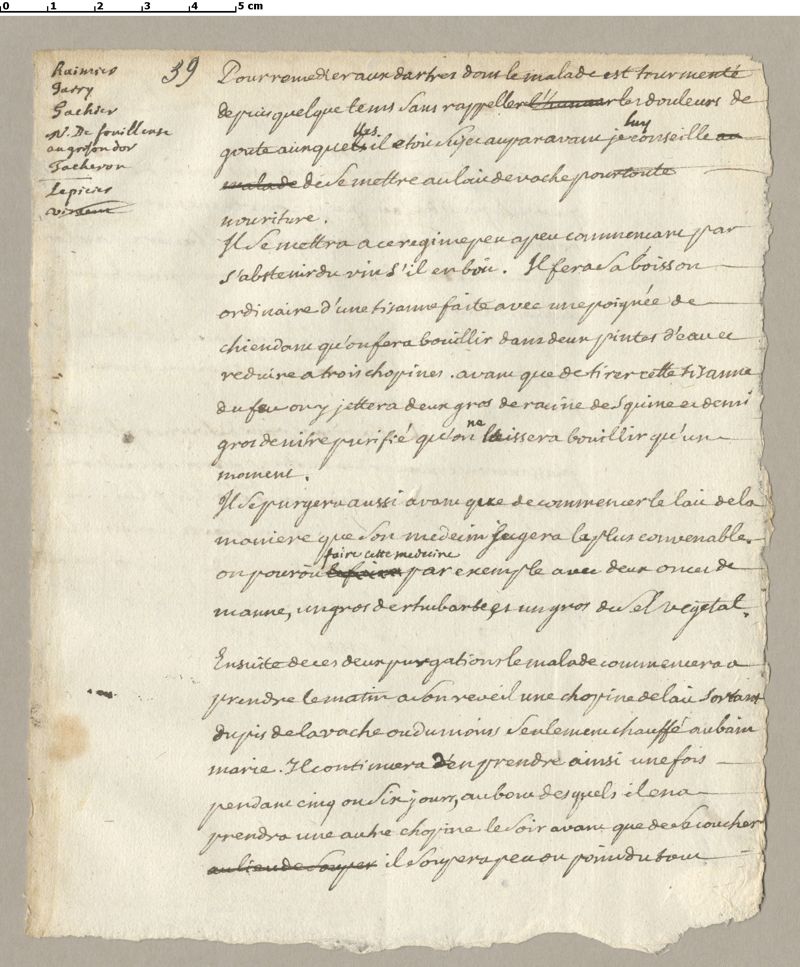 0 1 2 3 4 5 cm
Raimier
Garry
Gachier
N. De fouilleuse
au grifon dor
Tacheron
Lepicier
39
Pour remedier aux dartres dont le malade est tourmenté
depuis quelque tems sans rappeller l'humeur les douleurs de
goute auxquelles il etoit sujet auparavant je luy conseille au
malade de se mettre au lait de vache pour toute
nouriture.
Il se mettra a ce regime peu a peu commencant par
s'abstenir du vin s'il en boit. Il fera sa boisson
ordinaire d'une tisanne faite avec une poignée de
chiendant qu'on fera bouillir dans deux pintes d'eau et
reduire a trois chopines. avant que de tirer cette tisanne
du feu on y jettera deux gros de racine de squine et demi
gros de nitre purifié qu'on ne laissera bouillir qu'un
moment.
Il se purgera aussi avant que de commencer le lait de la
maniere que son medecin jugera la plus convenable.
on pouroit faire cette medecine par exemple avec deux onces de
manne, un gros de rhubarbe, et un gros du sel vegetal.
Ensuite de ces deux purgations le malade commencera a
prendre le matin a son reveil une chopine de lait sortant
du pis de la vache ou du moins seulement chauffé au bain
marie. Il continuera d'en prendre ainsi une fois
pendant cinq ou six jours, au bout desquels il en
prendra une autre chopine le soir avant que de se coucher
au lieu de souper il soupera peu ou point du tout